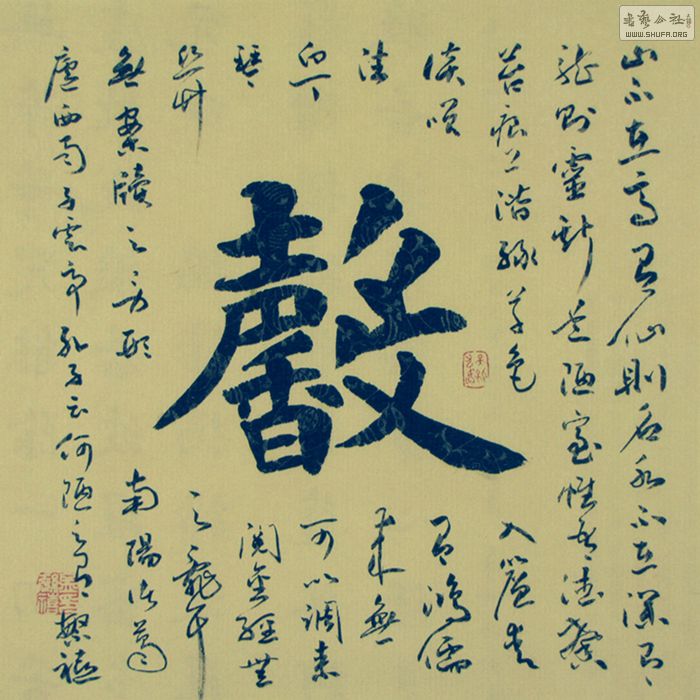 山不在高有仙則名水不在深有
龍則靈斯是陋室惟吾德馨
苔痕上階綠草色入簾青
談笑有鴻儒
往來無
白丁可以調素
琴閱金經無
絲竹之亂耳
無案牘之勞形南陽諸葛
廬西蜀子雲亭孔子云何陋之有
馨
書藝公社
WWW.SHUFA.ORG